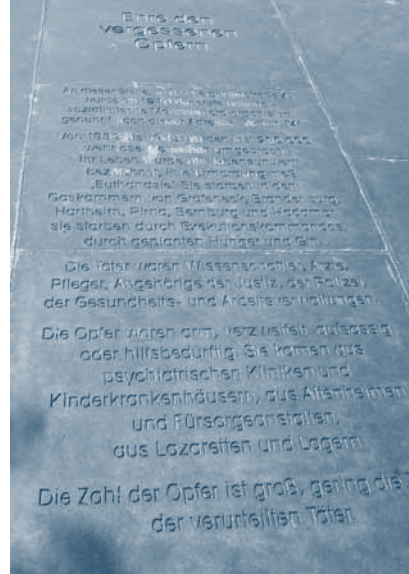 Ehre den
vergessenen
Opfern
An dieser Stelle, in der Tiergartenstraße 4,
wurde ab 1940 der erste
nationalsozialistische Massenmord organisiert,
genannt nach dieser Adresse
Von 1939 bis 1945 wurden fast 200 000
wehrlose Menschen umgebracht.
Ihr Leben wurde als lebensunwert
bezeichnet, ihre Ermordung hieß
„Euthanasie“. Sie starben in den
Gaskammern von Grafeneck, Brandenburg,
Hartheim, Pirna, Bernburg und Hadamar
sie starben durch Exekutionskommandos,
durch geplanten Hunger und Gift.
Die Täter waren Wissenschaftler, Ärzte,
Pfleger, Angehörige der Justiz, der Polizei,
der Gesundheits- und Arbeitsverwaltungen.
Die Opfer waren arm, verzweifelt, aufsässig
oder hilfsbedürftig. Sie kamen aus
psychiatrischen Kliniken und
Kinderkrankenhäusern, aus Altenheimen
und Fürsorgeanstalten,
aus Lazaretten und Lagern.
Die Zahl der Opfer ist groß, gering die
der verurteilten Täter.